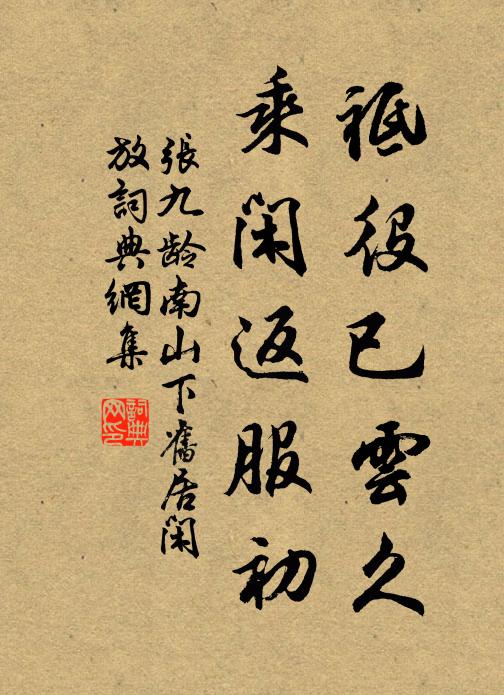 祗役已雲久
乘閑返服初
張九齡南山下舊居閑
放詞典網集
詞典
网印